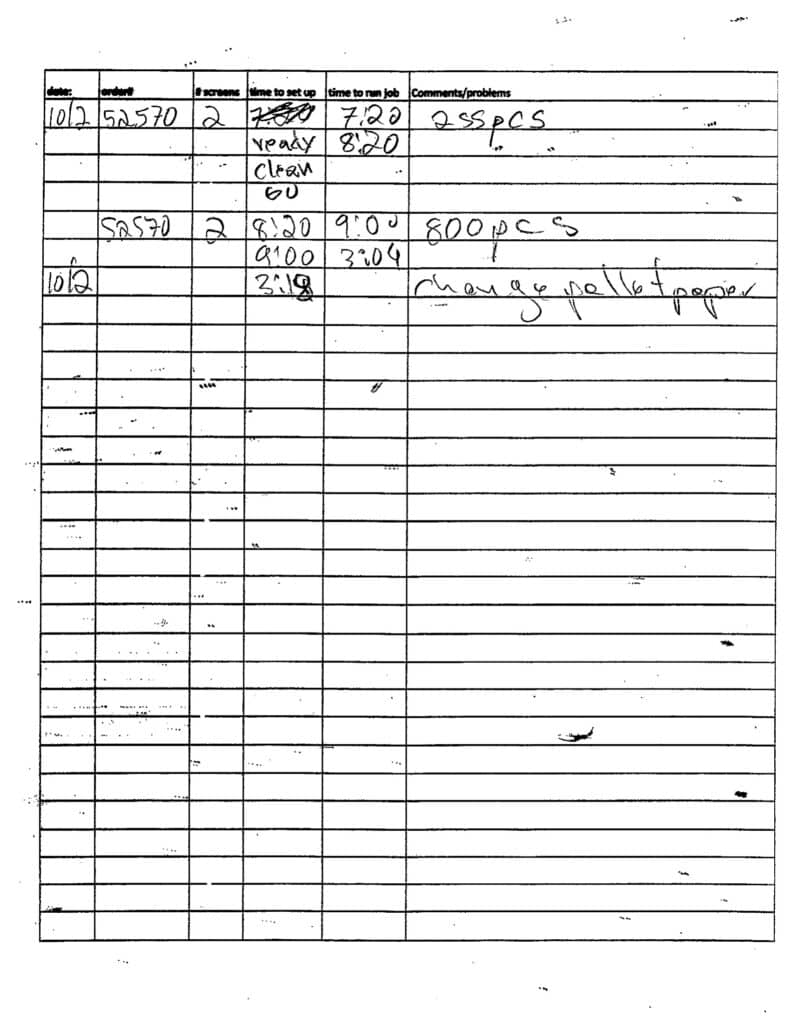 date: order# # screens time to set up time to run job Comments/problems
10/2 52570 2 7:20 255 pcs
ready 8:20
clean
52570 2 8:20 9:00 800 pcs
9:00 3:04
10/2 3:18 change pellet paper